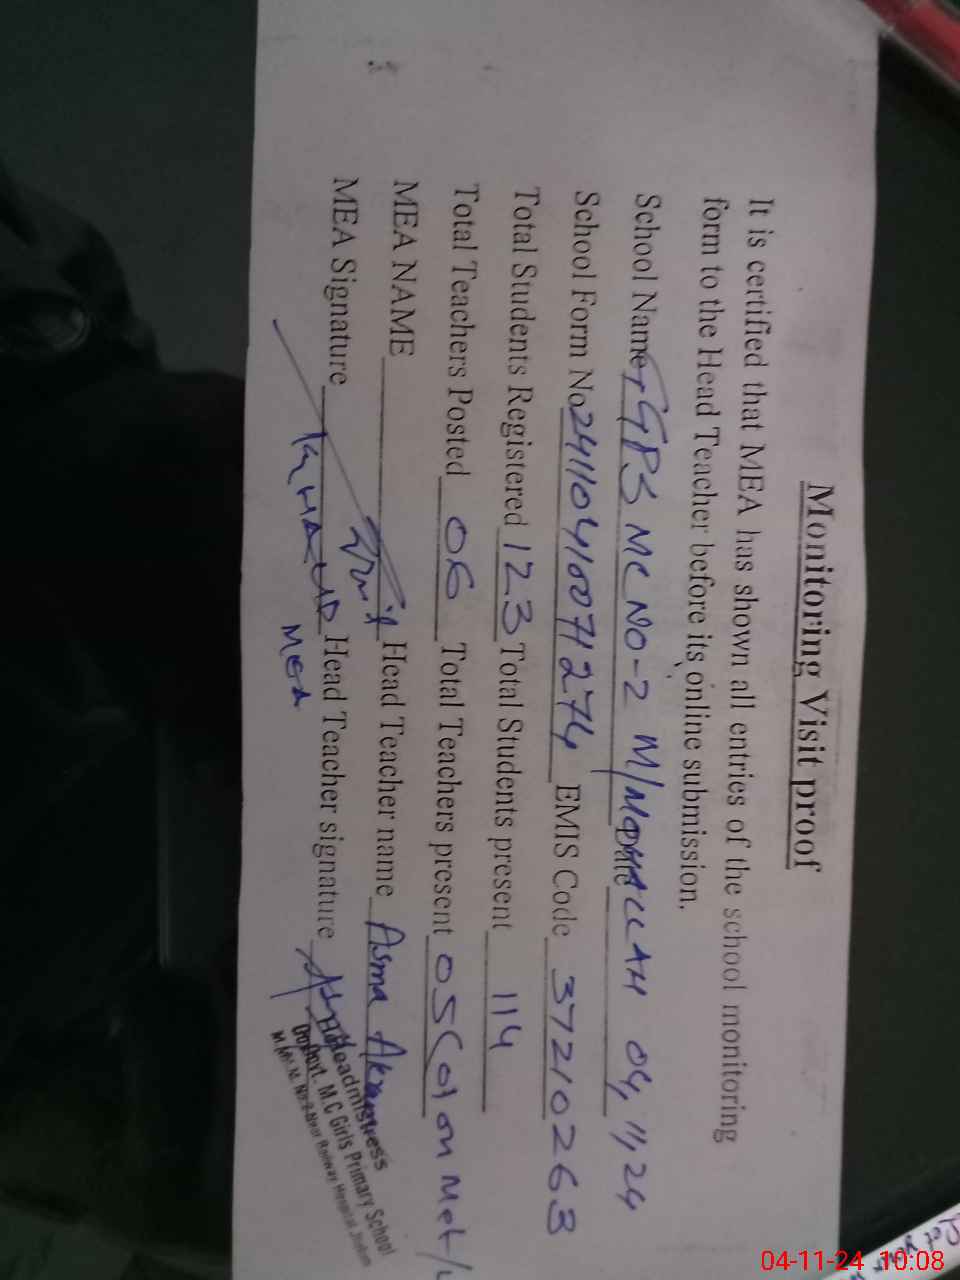 Monitoring Visit proof
It is certified that MEA has shown all entries of the school monitoring
form to the Head Teacher before its online submission.
School Name GGPS MC NO-2 M/MOHALLAH Date 04,11,24
School Form No 24110410071274 EMIS Code 37210263
Total Students Registered 123 Total Students present 114
Total Teachers Posted 06 Total Teachers present 05(01 on Mat/L
MEA NAME Head Teacher name Asma Akram
MEA Signature Head Teacher signature
MEA
Headmistress
Govt. M.C Girls Primary School
04-11-24 10:08